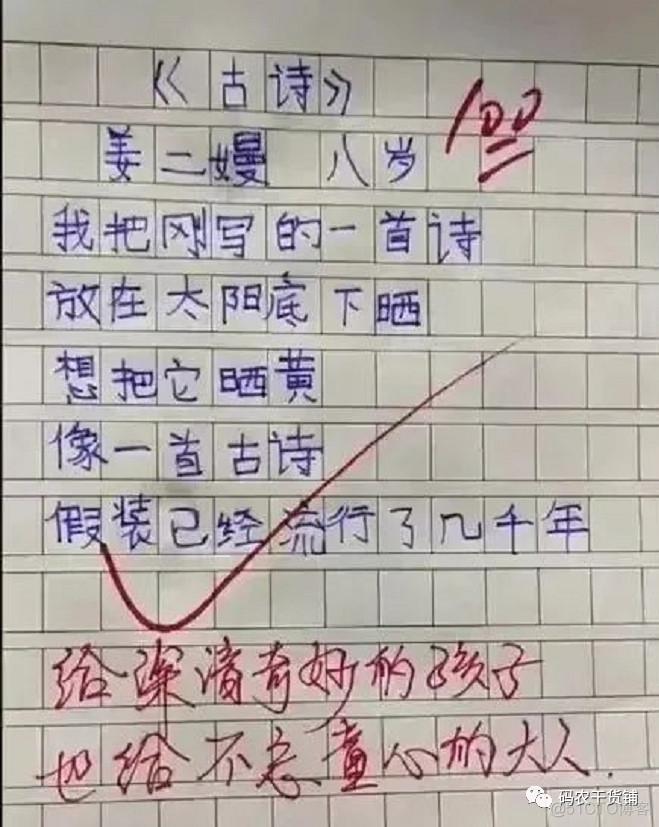 《古诗》
100
姜二嫚 八岁
我把刚写的一首诗
放在太阳底下晒
想把它晒黄
像一首古诗
假装已经流行了几千年
给深情奇妙的孩子
也给不忘童心的大人.
码农干货铺
@51CTO博客